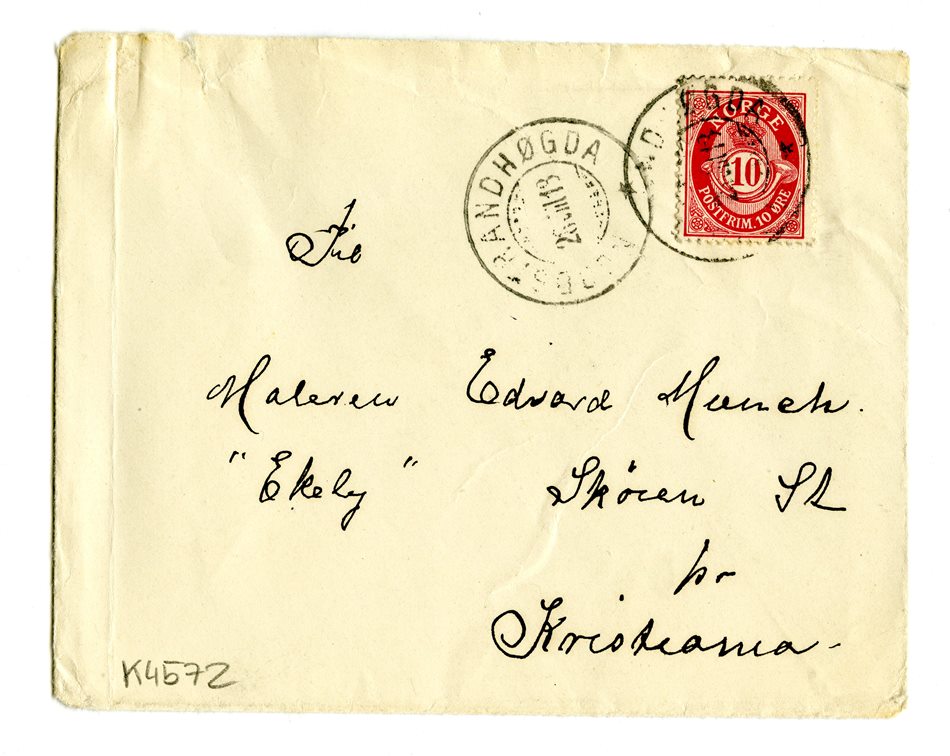 NORGE
10
POSTFRIM. 10 ØRE
Til
Maleren Edvard Munch.
"Ekely" Skøien St
pr
Kristiania -
K4572